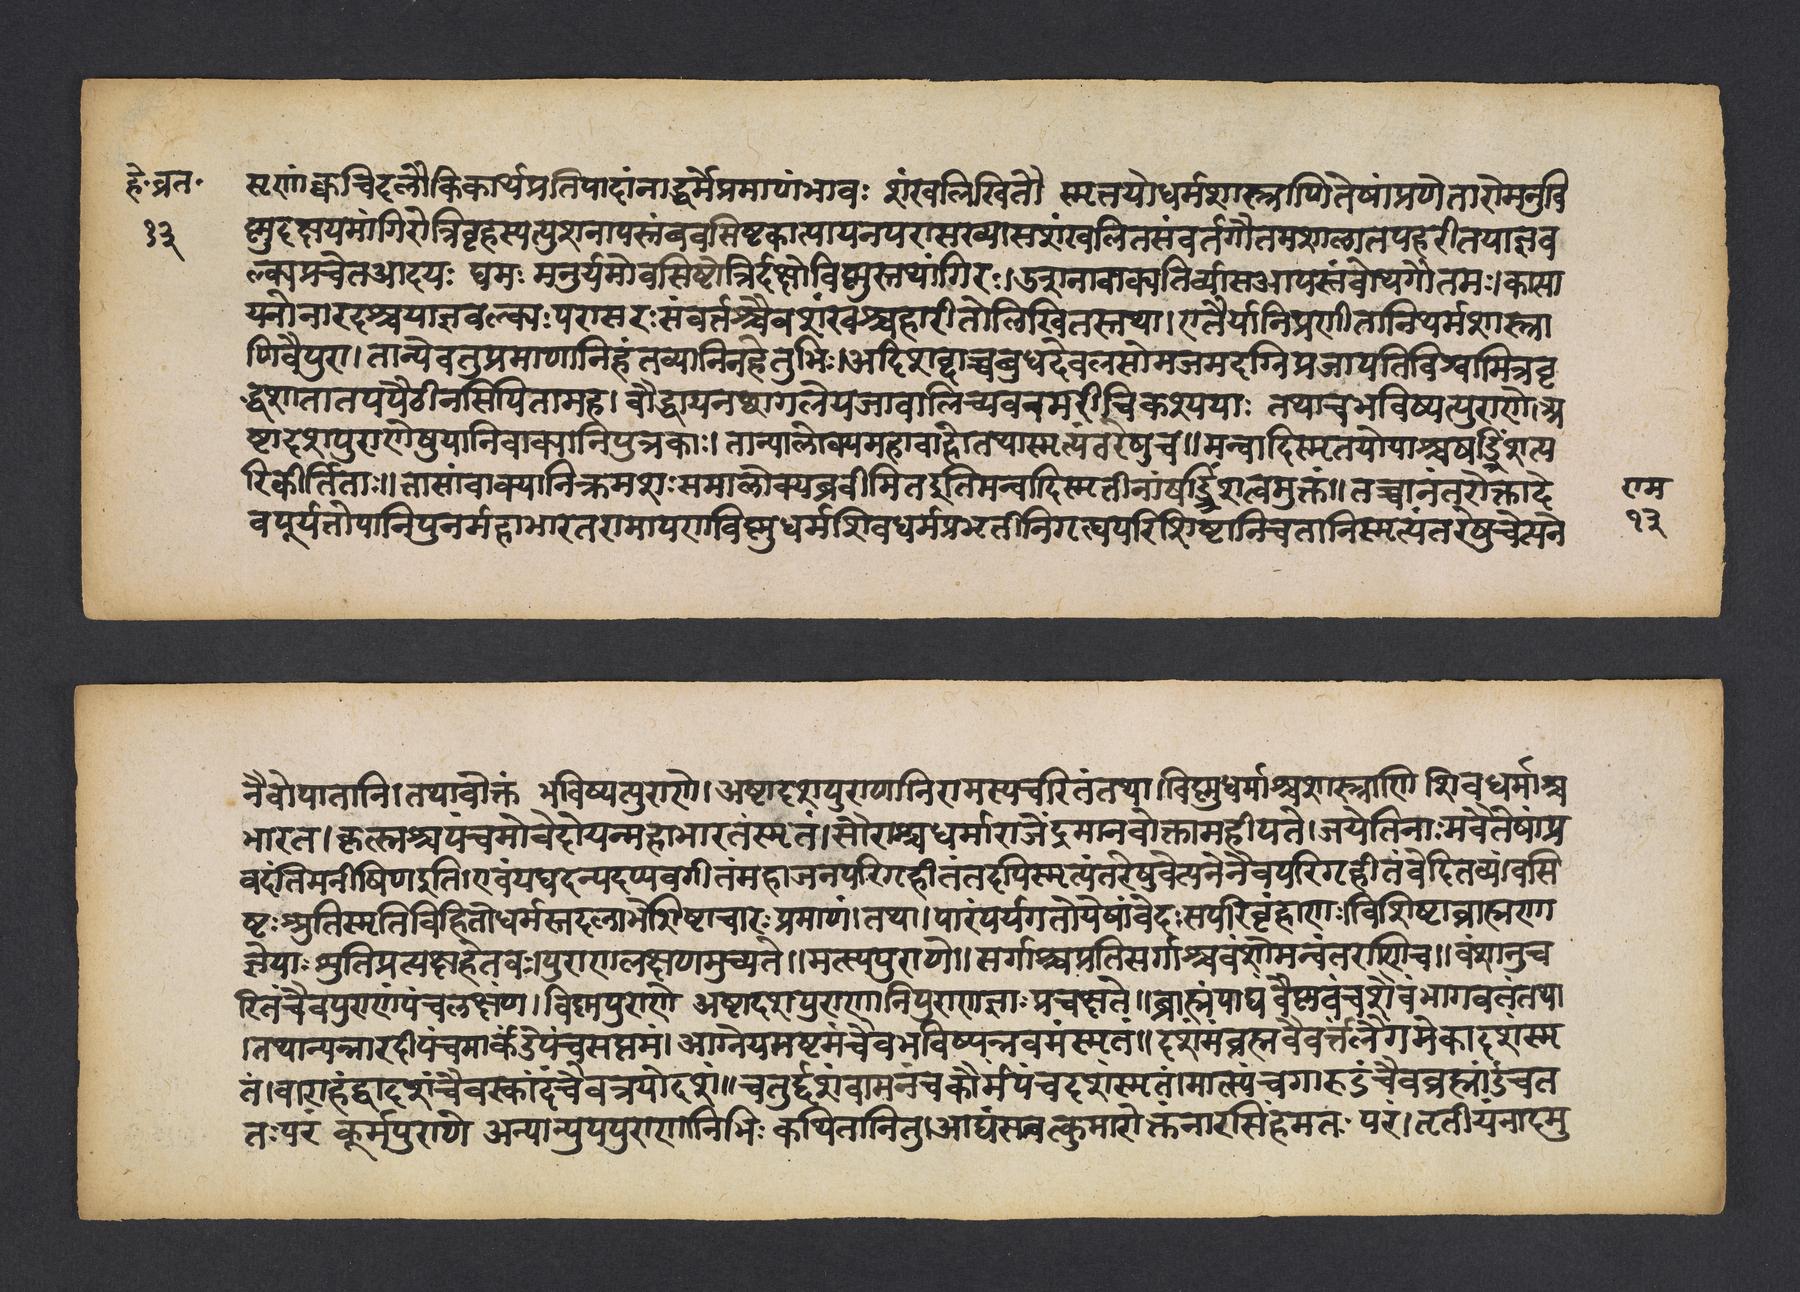 हे॰व्रत॰
१३
सराणांक्वचिदलौकिकार्थप्रतिपादांनाद्धर्मेप्रमाणंभावः शंखलिखितौ स्मृतयोधर्मशास्त्राणितेषांप्रणेतारोमनुवि
ष्णुदक्षयमांगिरोत्रिवृहस्पत्युशनापस्तंबवसिष्टकात्यायनपराशरव्यासशंखलितसंवर्तगौतमशातातपहरीतयाज्ञव
ल्क्यप्रचेतआदयः यमः मनुर्यमोवसिष्टोत्रिर्दक्षोविष्णुस्तथांगिरः।उशनावाक्पतिर्व्यासआपस्तंबोथगौतमः।कात्या
यनोनारदश्चयाज्ञवल्क्यःपरासरःसंवर्तश्चैवशंखश्चहारीतोलिखितस्तथा।एतैर्यानिप्रणीतानिधर्मशास्त्रा
णिवैपुरा।तान्येवतुप्रमाणानिहंतव्यानिनहेतुभिः।आदिशब्दाच्चबुधदेवलसोमजमदग्निप्रजापतिविश्वामित्रवृ
द्धशातातपपैठीनसिपितामह।बौद्धायनछागलेयजाबालिच्यवनमरीचिकश्यपाः तथाचभविष्यत्पुराणे।अ
ष्टादशपुराणेषुयानिवाक्यानिपुत्रकाः।तान्यालोक्यमहाबाहोतथास्मृत्यंतरेषुच॥मन्वादिस्मृतयोयाश्चषट्त्रिंशत्प
रिकीर्तिताः॥तासांवाक्यानिक्रमशःसमालोक्यब्रवीमितइतिमन्वादिस्मृतीनांषट्त्रिंशत्वमुक्तं॥तच्चानंतरोक्तादे
वपूर्यतोयानिपुनर्महाभारतरामायणविष्णुधर्मशिवधर्मप्रभृतीनिगृह्यपरिशिष्टानिचतानिस्मृत्यंतरेषुचेत्यने
राम
१३
नैवोपातानि।तथाचोक्तं भविष्यत्पुराणे।अष्टादशपुराणानिरामस्यचरितंतथा।विष्णुधर्माश्चशास्त्राणि शिवधर्माश्च
भारत।कृत्स्नश्चपंचमोवेदोयन्महाभारतंस्मृतं।सौराश्चधर्माराजेंद्रमानवोक्तामहीपते।जयेतिनाःमचेतेषांप्र
वदंतिमनीषिणइति।एवंयद्यदन्यदप्यवगीतंमहाजनपरिगृहीतंतदपिस्मृत्यंतरेषुचेत्यनेनैवपरिगृहीतंवेदितव्यं।वसि
ष्टःश्रुतिस्मृतिविहितोधर्मस्तदलाभेशिष्टाचारःप्रमाणं।तथा।पारंपर्यगतोयेषांवेदःसपरिवृंहाणः।विशिष्टाब्राह्मण
ज्ञेयाःश्रुतिप्रत्यक्षहेतवः।पुराणलक्षणमुच्यते॥मत्स्यपुराणे॥सर्गाश्चप्रतिसर्गाश्चवंशोमन्वंतराणिच॥वंशानुच
रितंचैवपुराणंपंचलक्षंण।विष्णुपुराणे अष्टादशपुराणानिपुराणज्ञाःप्रचक्षते॥ब्राह्मंपाद्मंवैष्णवंचशैवंभागवतंतथा
।तथान्यन्नारदीपंचमार्कंडेपंचसप्तमं।आग्नेयमष्टमंचैवभविष्यन्नवमंस्मृतं॥दशमंब्रह्मवैवर्त्तंलैंगमेकादशंस्मृ
तं।वाराहंद्वादशंचैवस्कांदंचैवत्रयोदशं॥चतुर्द्दशंवामनंचकौर्मंपंचदशंस्मृतं।मात्स्यंचगारुडंचैवब्रह्मांडंचत
तःपरं कूर्मपुराणे अन्यान्युपपुराणानिमुनिभिः कथितानितु।आद्यंसनत्कुमारोक्तंनारसिंहमतः परं।तृतीयंनादमु